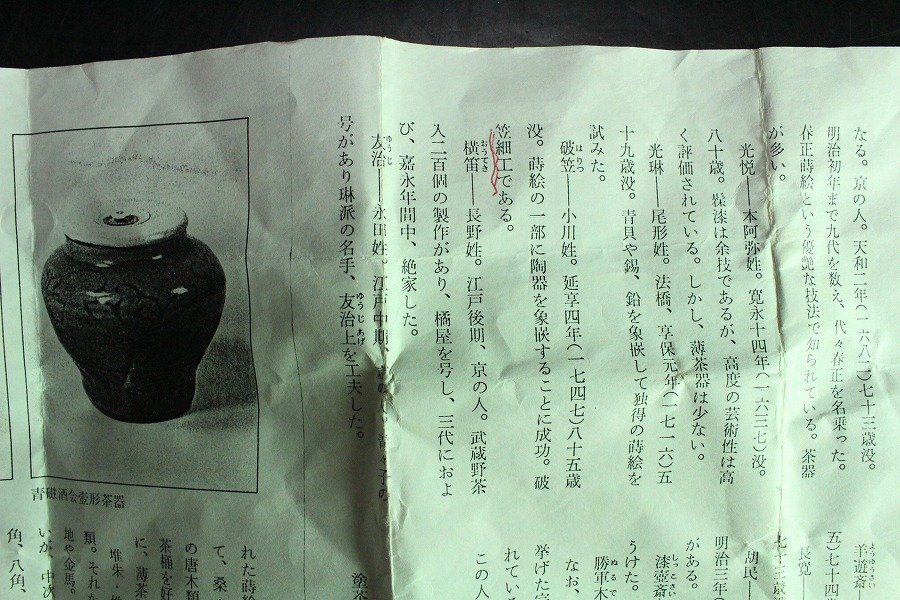 なる。京の人。天和二年(一六八二)七十三歳没。
明治初年まで九代を数え、代々春正を名乗った。
春正蒔絵という優艶な技法で知られている。茶器
が多い。
光悦――本阿弥姓。寛永十四年(一六三七)没。
八十歳。髹漆は余技であるが、高度の芸術性は高
く評価されている。しかし、薄茶器は少ない。
光琳――尾形姓。法橋、享保元年(一七一六)五
十九歳没。青貝や錫、鉛を象嵌して独得の蒔絵を
試みた。
破笠――小川姓。延享四年(一七四七)八十五歳
没。蒔絵の一部に陶器を象嵌することに成功。破
笠細工である。
横笛――長野姓。江戸後期、京の人。武蔵野茶
入二百個の製作があり、橘屋を号し、三代におよ
び、嘉永年間中、絶家した。
友治――永田姓。江戸中期、
号があり琳派の名手、友治上を工夫した。
青磁酒会壺形茶器
羊遊斎――
五)七十四
長寛――
七十三歳
胡民――
明治三年(
がある。
漆壺斎
うけた。
勝軍木
なお、
挙げた
れている
この人
塗茶
れた蒔絵
て、桑
の唐木類
茶桶を好
に、薄茶
堆朱・
類。それ
地や金馬。
いが、中次
角、八角、